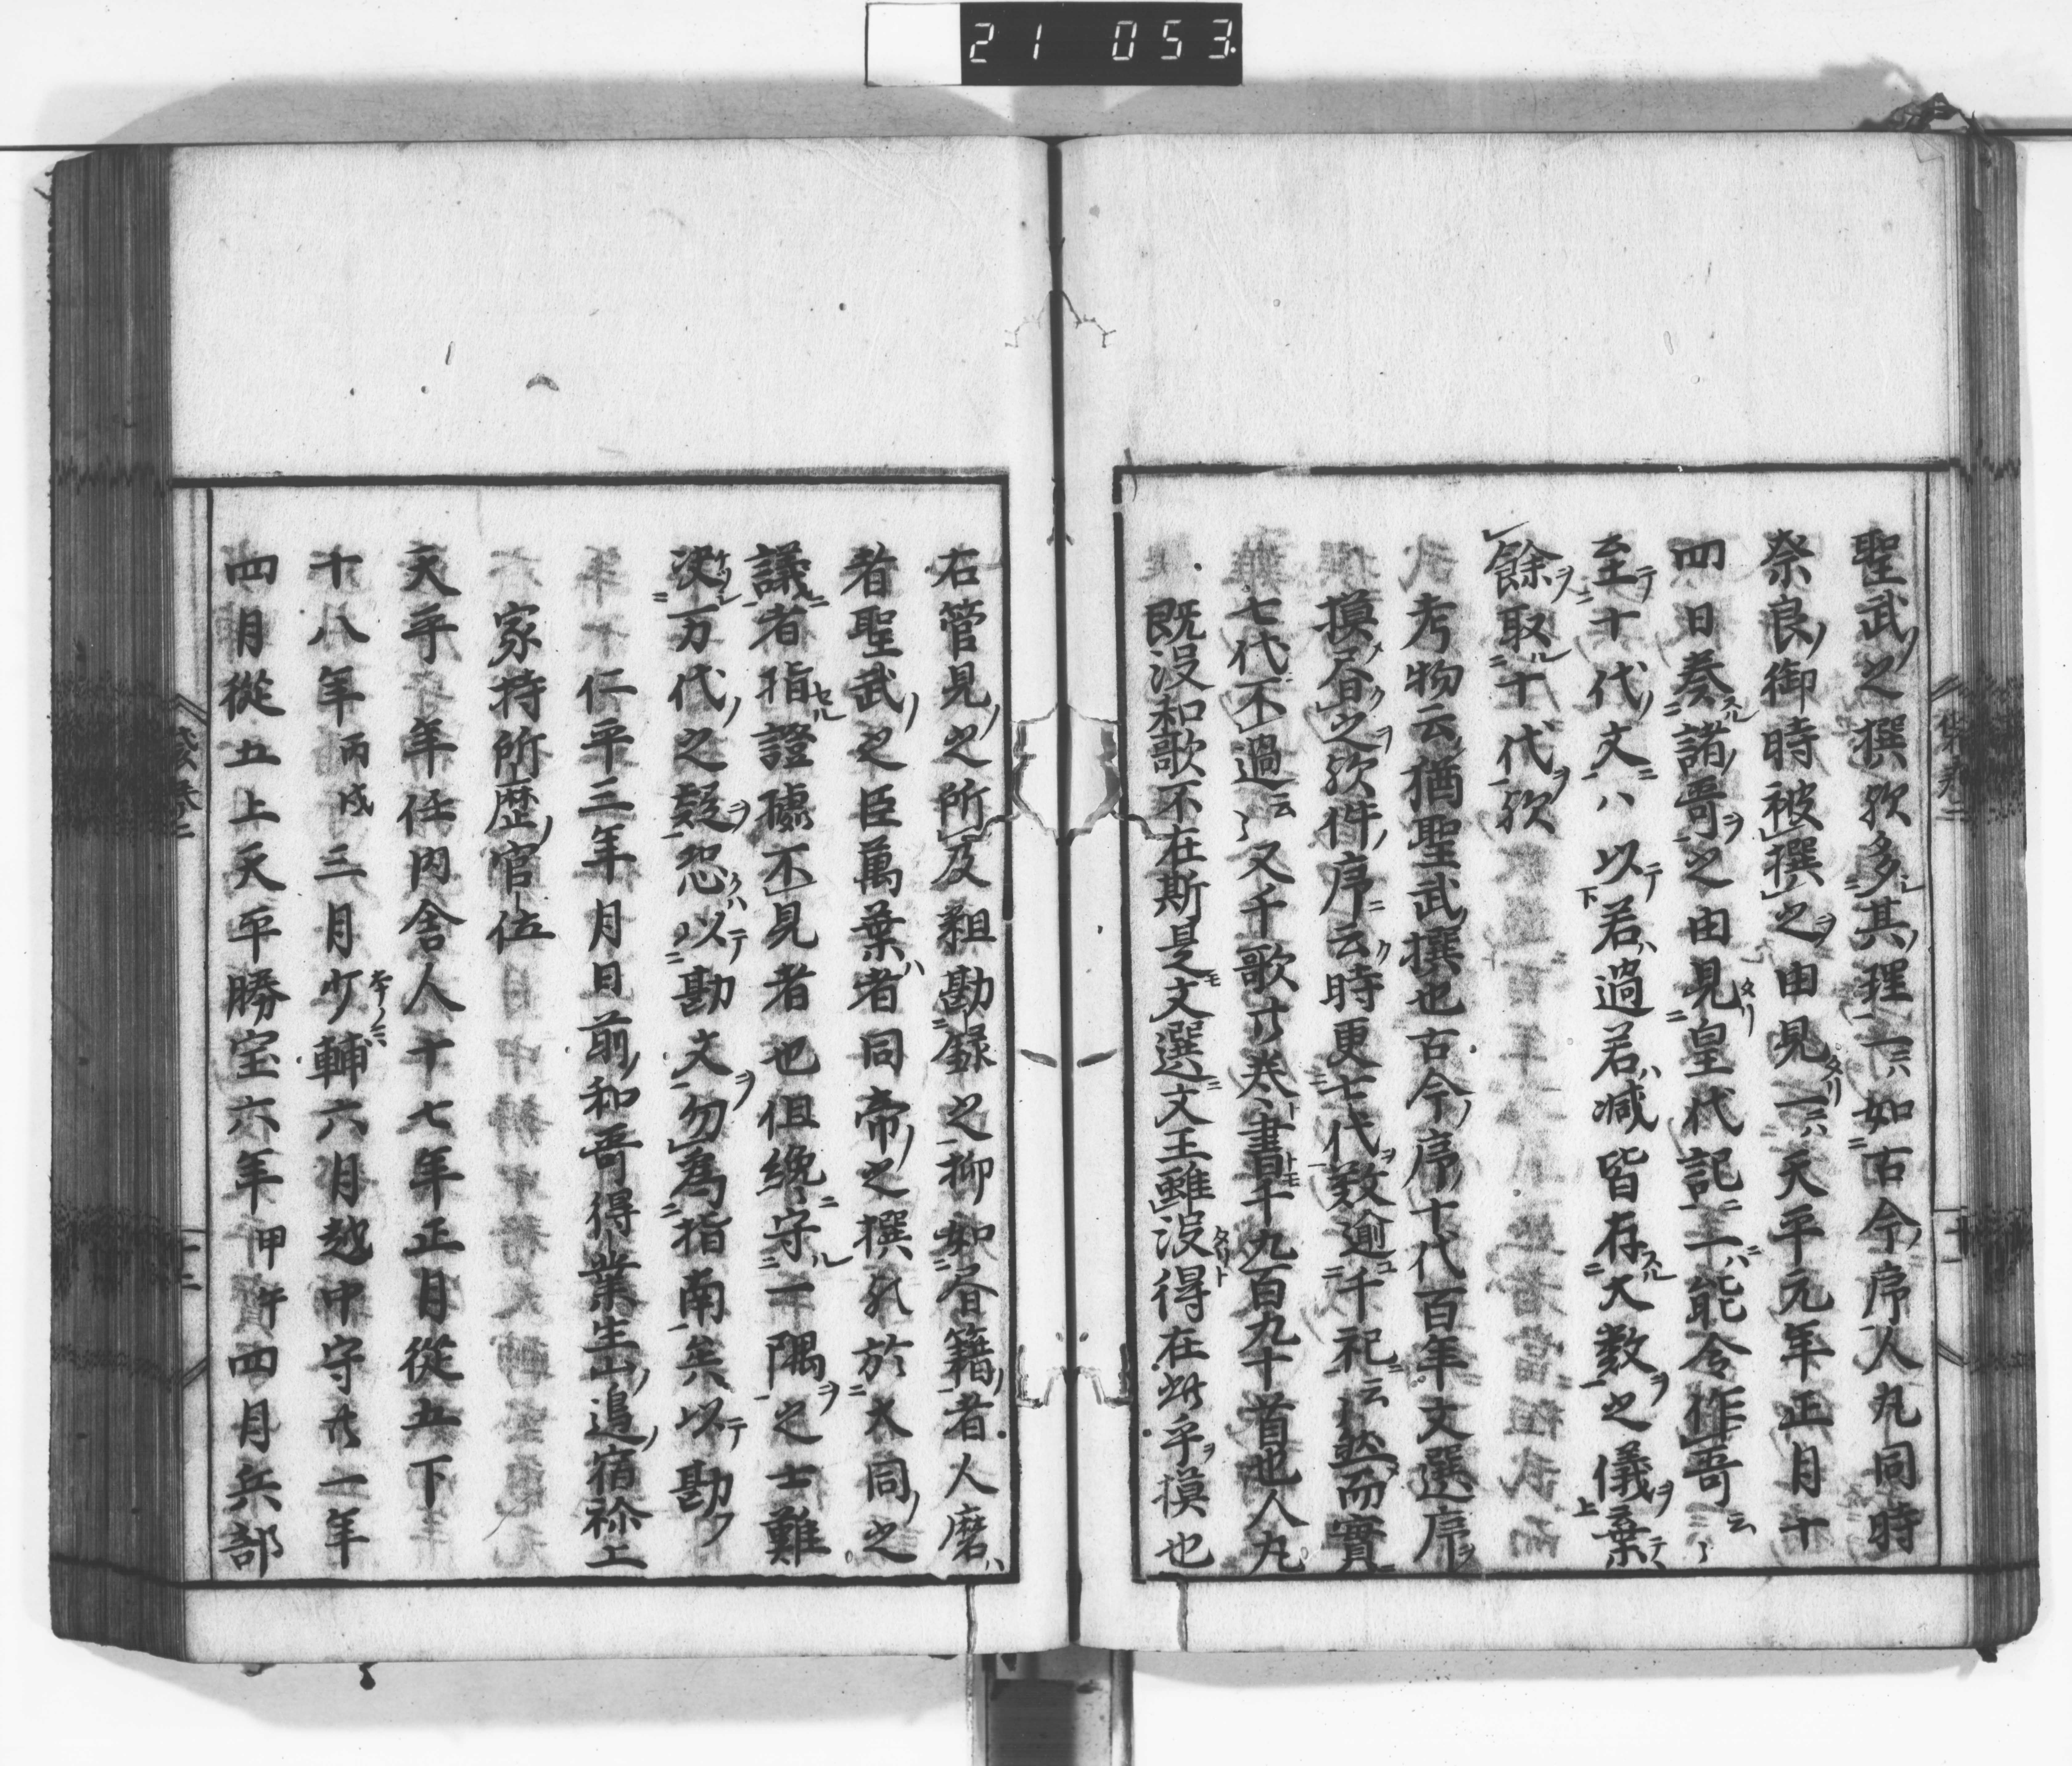 21 053
聖武之撰歟多其理一ニハ如古今序人丸同時
奈良御時被撰之由見一ニハ天平元年正月十
四日奏諸哥之由見皇代記一ニハ能令作哥云〻
至十代文ハ以若過若減皆存大數之儀棄
餘取十代歟
考物云猶聖武撰也古今序十代百年文選序
摸眉之歟件序云時更七代數逾千祀云然而實
七代不過云〻又千歌廿巻書千九百九十首也人丸
既没和歌不在斯是文選文王雖没得在此乎摸也
右管見之所及粗勘録之抑如眉籍者人磨ハ
者聖武之臣萬葉者同帝之撰於大同之
議者指證據不見者也但纔守一隅之士難
决万代之疑怨以勘文勿為指南矣以勘
仁平三年月日前和哥得業生山追宿祢上
家持所歴官位
天平年任内舎人十七年正月從五下
十八年丙戌三月少輔六月越中守廿一年
四月從五上天平勝宝六年甲午四月兵部